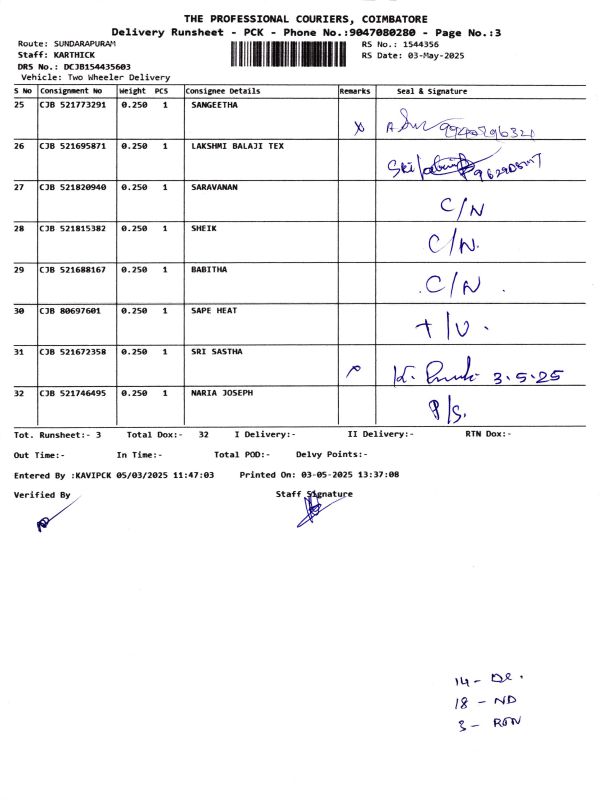 THE PROFESSIONAL COURIERS, COIMBATORE
Delivery Runsheet - PCK - Phone No.:9047080280 - Page No.:3
Route: SUNDARAPURAM RS No.: 1544356
Staff: KARTHICK RS Date: 03-May-2025
DRS No.: DCJB154435603
Vehicle: Two Wheeler Delivery
S No Consignment No Weight PCS Consignee Details Remarks Seal & Signature
25 CJB 521773291 0.250 1 SANGEETHA
26 CJB 521695871 0.250 1 LAKSHMI BALAJI TEX
27 CJB 521820940 0.250 1 SARAVANAN C/N
28 CJB 521815382 0.250 1 SHEIK C/N.
29 CJB 521688167 0.250 1 BABITHA .C/N .
30 CJB 80697601 0.250 1 SAPE HEAT
31 CJB 521672358 0.250 1 SRI SASTHA 3.5.25
32 CJB 521746495 0.250 1 NARIA JOSEPH P/S.
Tot. Runsheet:- 3 Total Dox:- 32 I Delivery:- II Delivery:- RTN Dox:-
Out Time:- In Time:- Total POD:- Delvy Points:-
Entered By :KAVIPCK 05/03/2025 11:47:03 Printed On: 03-05-2025 13:37:08
Verified By Staff Signature
14 - De.
18 - ND
3 - RTN